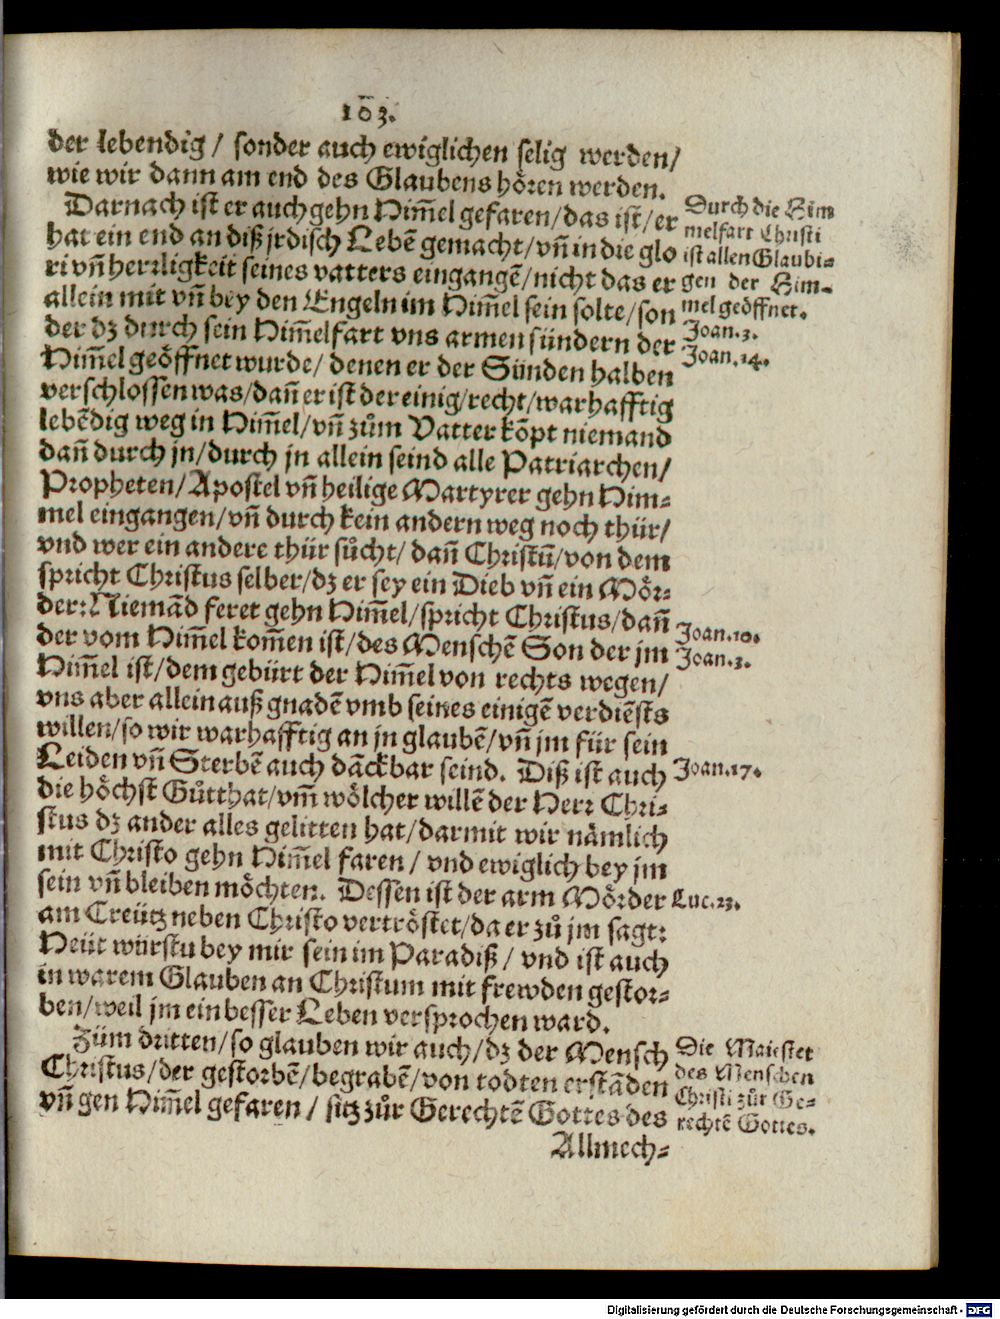 103.
der lebendig / sonder auch ewiglichen selig werden/
wie wir dann am end des Glaubens hören werden.
Darnach ist er auch gehn Him̃el gefaren/das ist/er
hat ein end an diß jrdisch Lebē gemacht/vn̄ in die glo
ri vn̄ herrligkeit seines vatters eingangē/nicht das er
allein mit vn̄ bey den Engeln im Him̃el sein solte/son
der dz durch sein Him̃elfart vns armen sündern der
Him̃el geöffnet wurde/ denen er der Sünden halben
verschlossen was/dan̄ er ist der einig/recht/warhafftig
lebēdig weg in Him̃el/vn̄ zům Vatter kōpt niemand
dan̄ durch jn/durch jn allein seind alle Patriarchen/
Propheten/Apostel vn̄ heilige Martyrer gehn Him-
mel eingangen/vn̄ durch kein andern weg noch thür/
vnd wer ein andere thür sůcht/ dan̄ Christū/von dem
spricht Christus selber/dz er sey ein Dieb vn̄ ein Mör-
der: Niemād feret gehn Him̃el/spricht Christus/dan̄
der vom Him̃el kom̃en ist/des Menschē Son der jm
Him̃el ist/dem gebürt der Him̃el von rechts wegen/
vns aber allein auß gnadē vmb seines einigē verdiēsts
willen/so wir warhafftig an jn glaubē/vn̄ jm für sein
Leiden vn̄ Sterbē auch dāckbar seind. Diß ist auch
die höchst Gůtthat/vm̃ wölcher willē der Herr Chri-
stus dz ander alles gelitten hat/darmit wir nämlich
mit Christo gehn Him̃el faren / vnd ewiglich bey jm
sein vn̄ bleiben möchten. Dessen ist der arm Mörder
am Creütz neben Christo vertröstet/da er zů jm sagt:
Heüt würstu bey mir sein im Paradiß / vnd ist auch
in warem Glauben an Christum mit frewden gestor-
ben/weil jm ein besser Leben versprochen ward.
Zům dritten/so glauben wir auch/dz der Mensch
Christus/der gestorbē/begrabē/von todten erstāden
vn̄ gen Him̃el gefaren / sitz zůr Gerechtē Gottes des
Allmech-
Durch die Him
melfart Christi
ist allen Glaubi-
gen der Him-
mel geöffnet.
Joan.3.
Joan.14.
Joan.10.
Joan.3.
Joan.17.
Luc.23.
Die Maiestet
des Menschen
Christi zůr Ge-
rechtē Gottes.
Digitalisierung gefördert durch die Deutsche Forschungsgemeinschaft - DFG